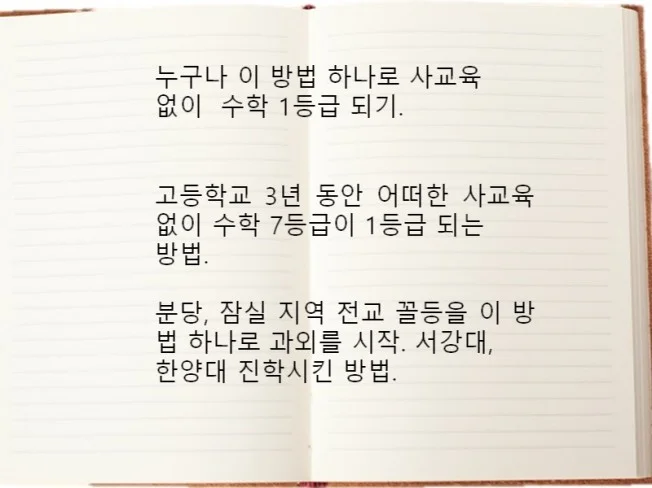 누구나 이 방법 하나로 사교육
없이 수학 1등급 되기.
고등학교 3년 동안 어떠한 사교육
없이 수학 7등급이 1등급 되는
방법.
분당, 잠실 지역 전교 꼴등을 이 방
법 하나로 과외를 시작. 서강대,
한양대 진학시킨 방법.